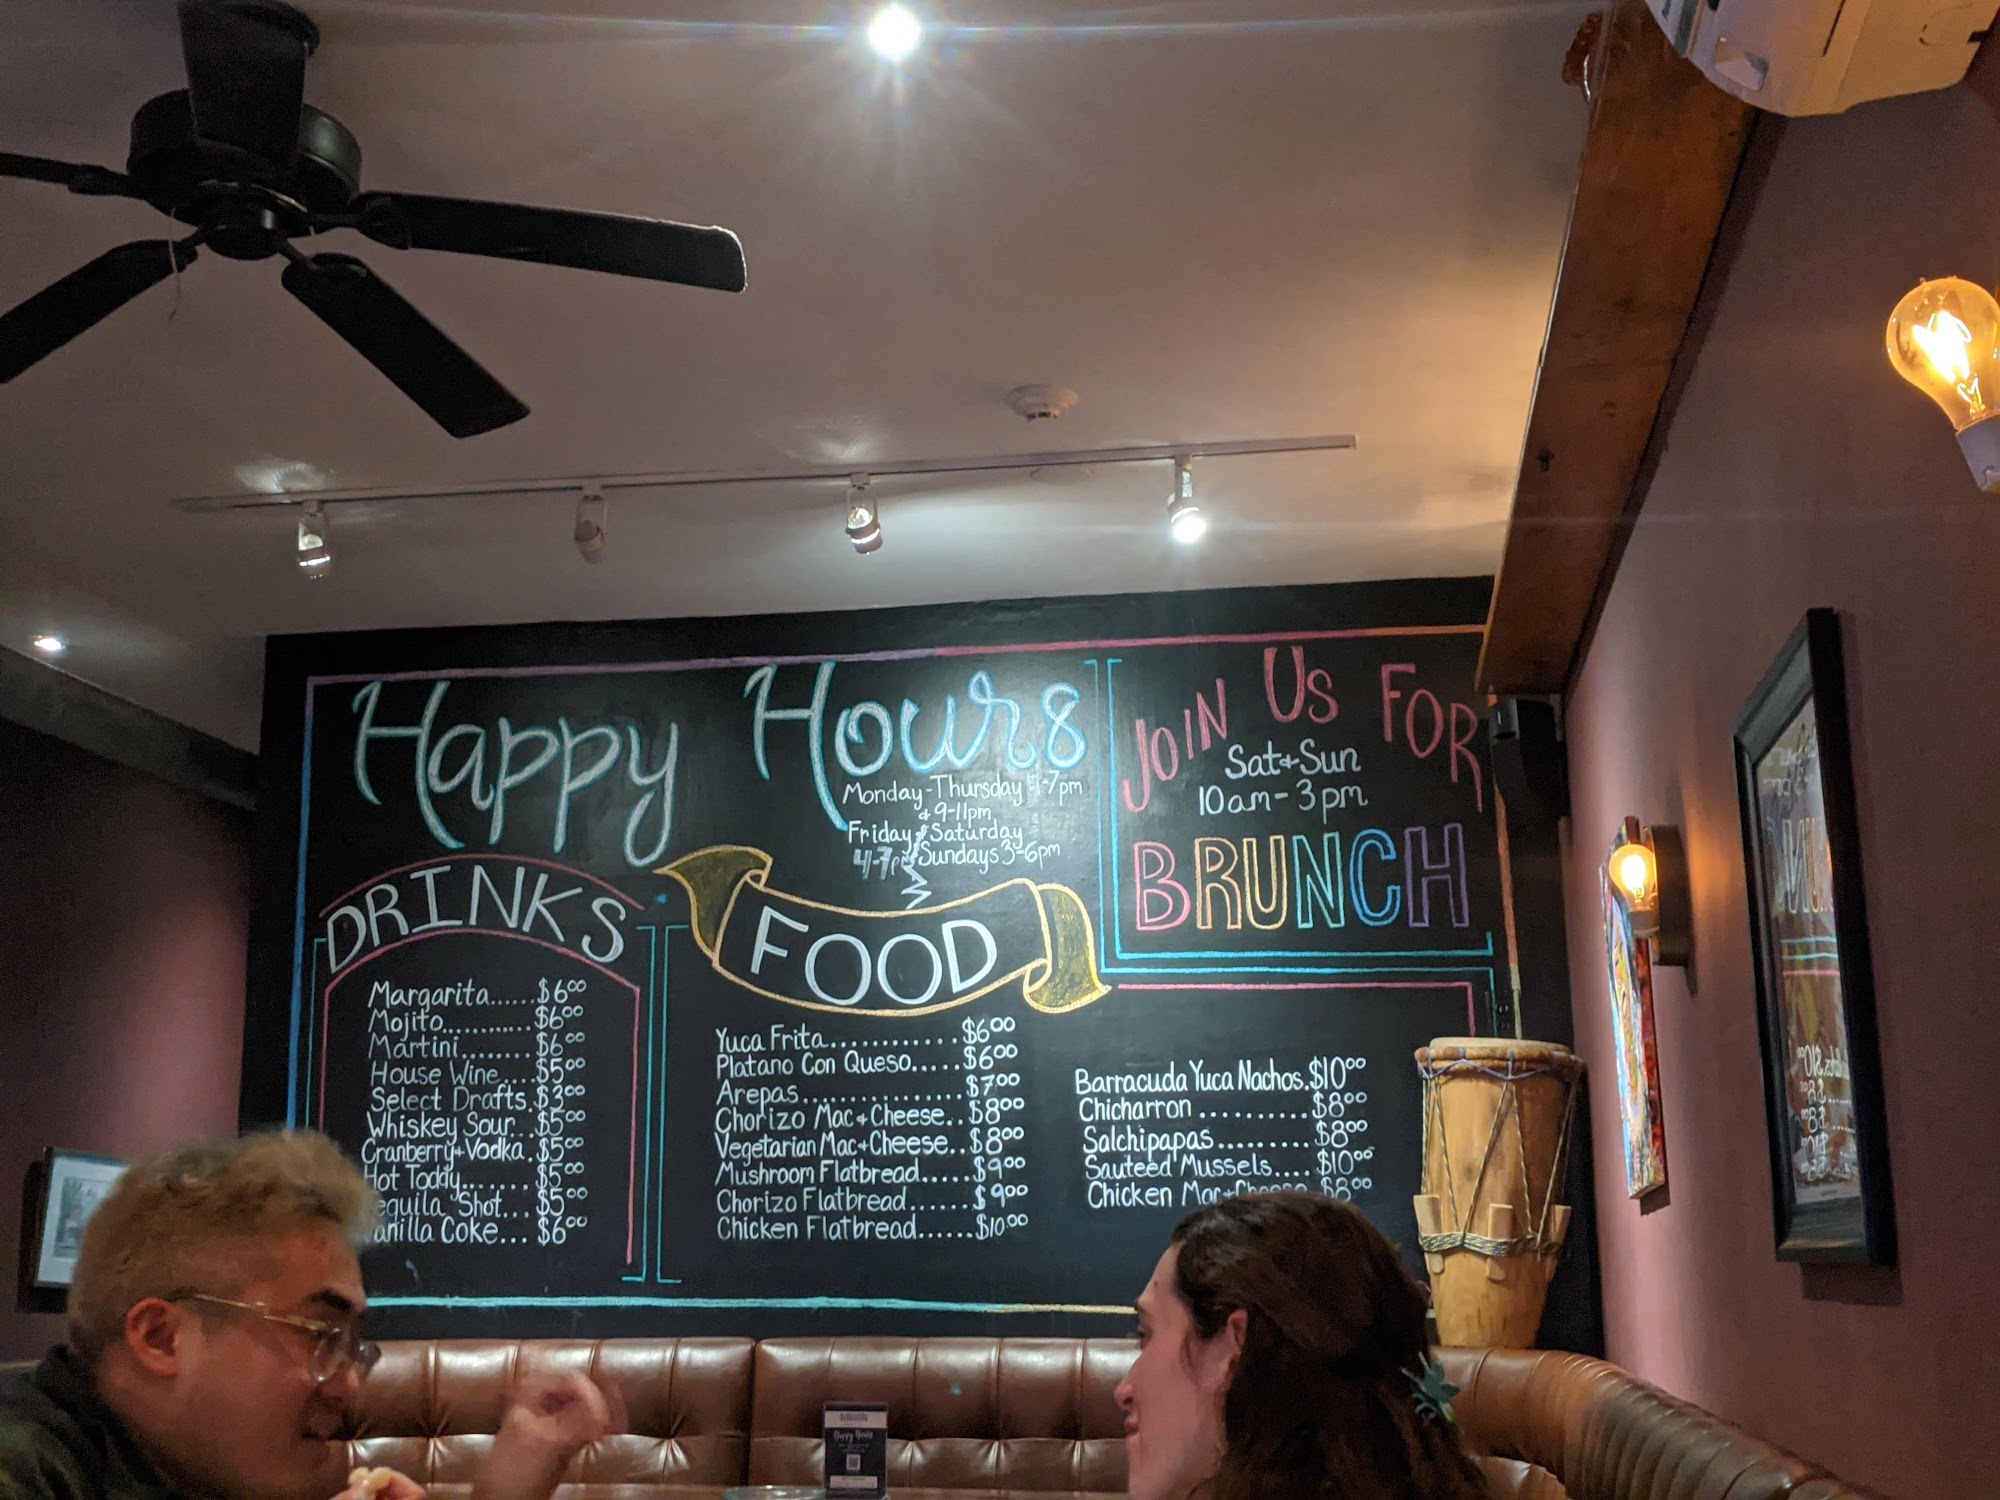 Happy Hours
Monday-Thursday 4-7pm
& 9-11pm
Friday & Saturday
4-7pm Sundays 3-6pm
JOIN US FOR
Sat & Sun
10am-3pm
BRUNCH
DRINKS
Margarita......$6.00
Mojito............$6.00
Martini.........$6.00
House Wine....$5.00
Select Drafts.$3.00
Whiskey Sour..$5.00
Cranberry+Vodka.$5.00
Hot Toddy.......$5.00
equila Shot...$5.00
anilla Coke...$6.00
FOOD
Yuca Frita............$6.00
Platano Con Queso.....$6.00
Arepas................$7.00
Chorizo Mac+Cheese..$8.00
Vegetarian Mac+Cheese..$8.00
Mushroom Flatbread.....$9.00
Chorizo Flatbread......$9.00
Chicken Flatbread......$10.00
Barracuda Yuca Nachos.$10.00
Chicharron..........$8.00
Salchipapas.........$8.00
Sauteed Mussels....$10.00
Chicken Mac+Cheese $8.00
Happy Hours